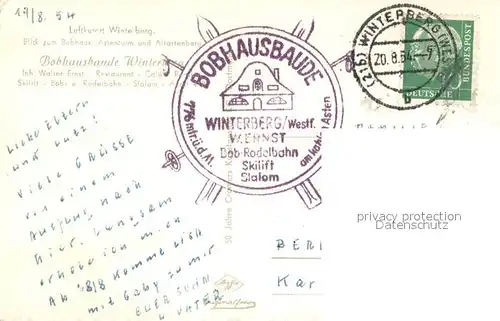 19/8. 54
Luftkurort Winterberg.
Blick zum Bobhaus, Astenturm und Altastenberg
Bobhausbaude Winter
Inh Walter Ernst Restaurant - Café
Skilift - Bob- u. Rodelbahn - Slalom
BOBHAUSBAUDE
776 mtr. ü. d. M.
WINTERBERG/Westf.
W. ERNST
Bob-Rodelbahn
Skilift
Slalom
am kahlen Asten
(21b) WINTERBERG (WESTF)
20.8.54.-7
b
DEUTSCHE BUNDESPOST
LIEBE ELTERN
UND LUTZ!
VIELE GRÜSSE
VON EINEM
AUSFLUG NACH
HIER. LANGSAM
ERHOLE ICH MICH
AB 28/8 KOMME ICH
MIT GABY ZU MIR
EUER SOHN
50 Jahre
Agfa
privacy protection
Datenschutz
BERL
Kar